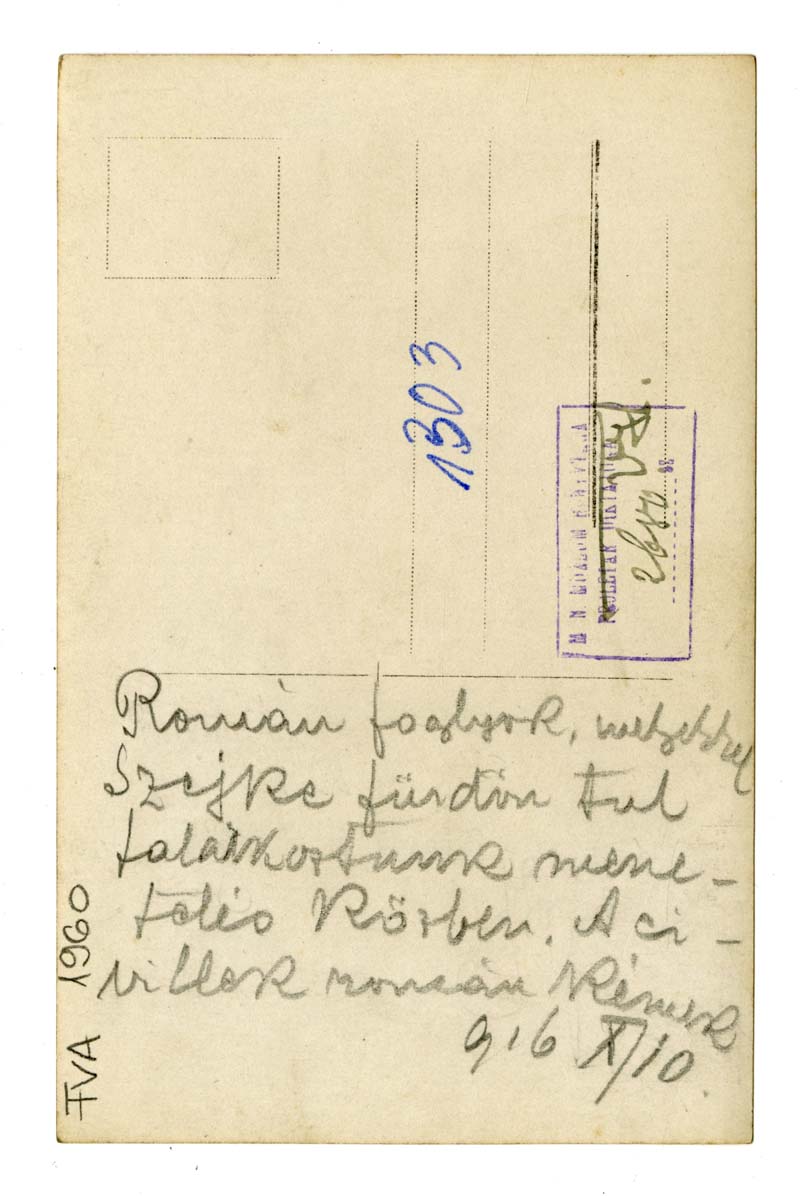 1303
2680
Román foglyok, melyekkel
Szejke fürdőn tul
találkoztunk mene-
telés közben. A ci-
villek román kémek
916 X/10.
FVA 1960